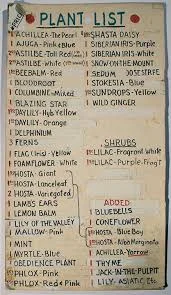 PLANT LIST
ACHILLEA-The Pearl
1 AJUGA-Pink & Blue
ASTILBE-Toll (Red)
ASTILBE-White
BEEBALM-Red
1 BLOODROOT
1 COLUMBINE-Mixed
1 BLAZING STAR
DAYLILY-Hyb Yellow
DAYLILY-Orange
1 DELPHINIUM
3 FERNS
FLAG (Iris)-Yellow
FOAMFLOWER-White
HOSTA-Giant
HOSTA-Lanceleaf
HOSTA-Variegated
LAMBS EARS
LEMON BALM
LILY OF THE VALLEY
MALLOW-Pink
1 MINT
MYRTLE-Blue
OBEDIENT PLANT
PHLOX-Pink
PHLOX-Red
SHASTA DAISY
SIBERIAN IRIS-Purple
SIBERIAN IRIS-White
SNOW ON THE MOUNTAIN
SEDUM
1 STOKESIA-Blue
SUNDROPS-Yellow
1 WILD GINGER
SHRUBS
LILAC-Fragrant White
LILAC-Purple-Fragt
ADDED
1 BLUEBELLS
1 CONEFLOWER
HOSTA-Blue Boy
HOSTA-Albo Marginata
ACHILLEA-Yellow
1 THYME
JACK-IN-THE-PULPIT
LILY, ASIATIC